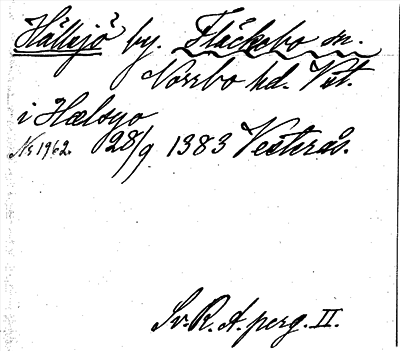 Hällsjö by. Fläckebo sn.
Norrbo hd. Vst.
i Hælsyo
No 1962. 28/9 1383 Vesterås.
Sv. R. A. perg. II.